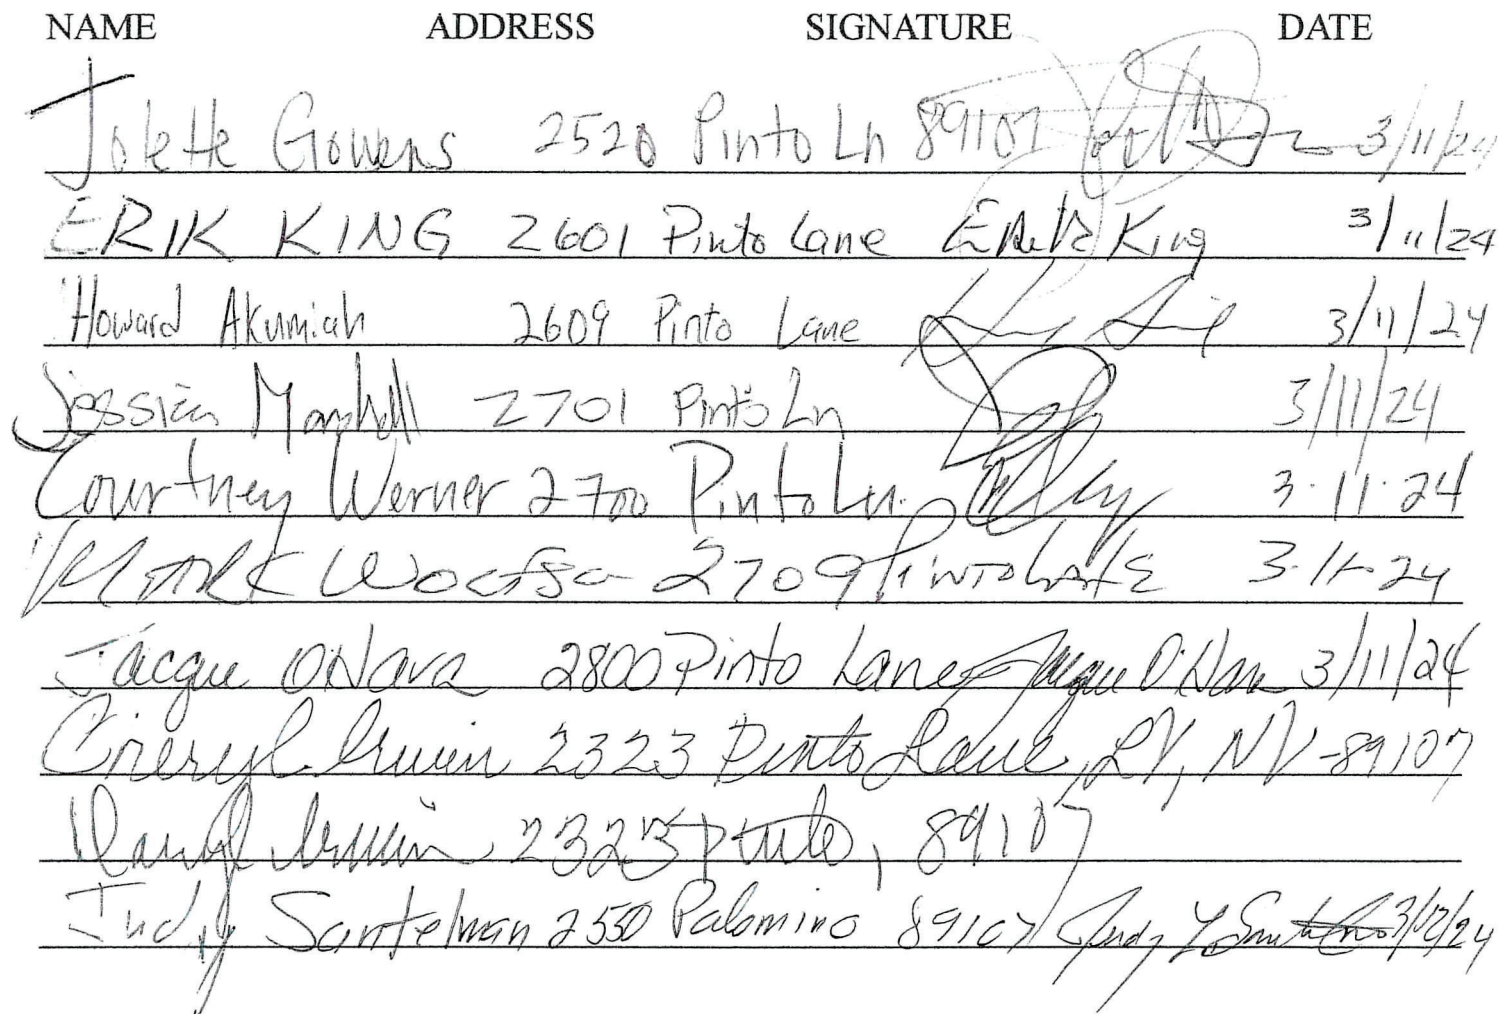 NAME ADDRESS SIGNATURE DATE
Jolette Gowens 2520 Pinto Ln 89107 3/11/24
ERIK KING 2601 Pinto Lane Erik King 3/11/24
Howard Akumiah 2609 Pinto Lane 3/11/24
Jessica Marshall 2701 Pinto Ln 3/11/24
Courtney Werner 2700 Pinto Ln. 3.11.24
MARK 2709 PINTO LANE 3-11-24
Jacque OHara 2800 Pinto Lane Jacque O'Hara 3/11/24
Cheryl Irwin 2323 Pinto Lane, LV, NV-89107
Daryl Irwin 2323 Pinto, 89107
Judy Santelman 2550 Palomino 89107 Judy L 3/12/24